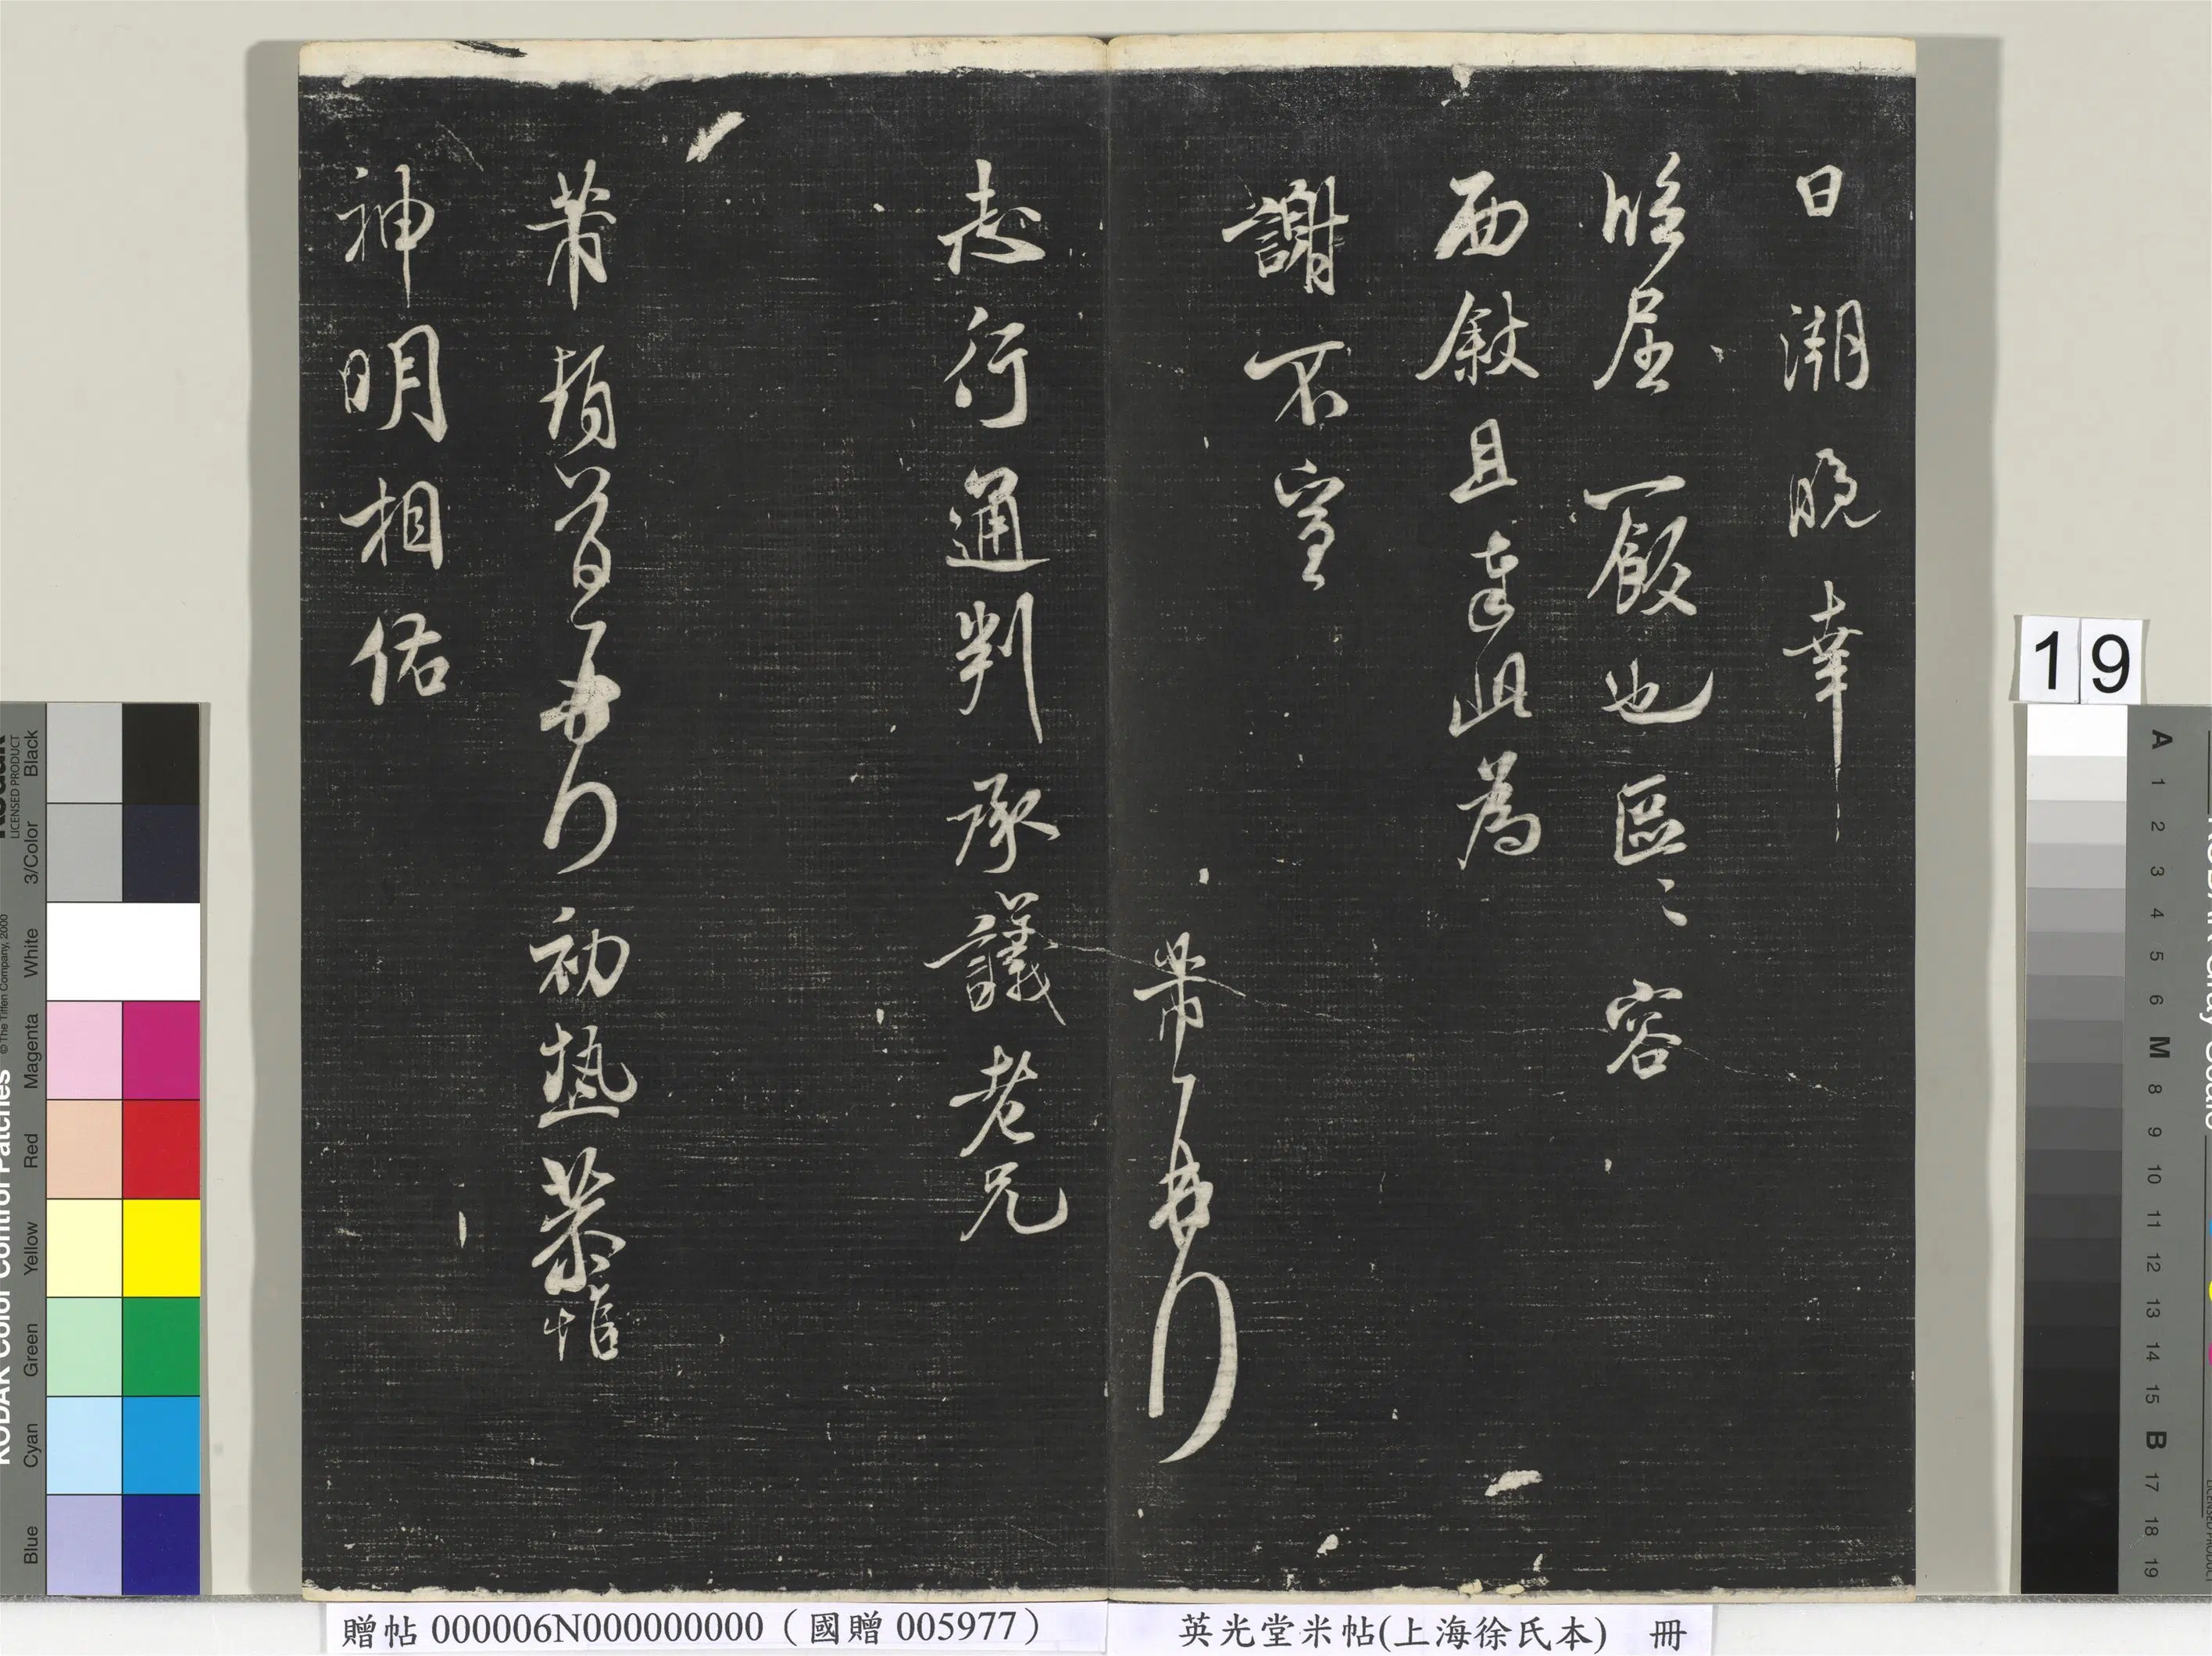 日潮晚幸
临屈一飯也區〻容
面敘且達此為
謝不宣
芾頓首再拜
志行通判承議老兄
芾頓首再拜初熱恭惟
神明相佑
19
贈帖 000006N000000000（國贈 005977）
英光堂米帖(上海徐氏本) 冊
KODAK Color Control Patches
© The Tiffen Company, 2000
Kodak
LICENSED PRODUCT
Blue Cyan Green Yellow Red Magenta White 3/Color Black
A 1 2 3 4 5 6 M 8 9 10 11 12 13 14 15 B 17 18 19